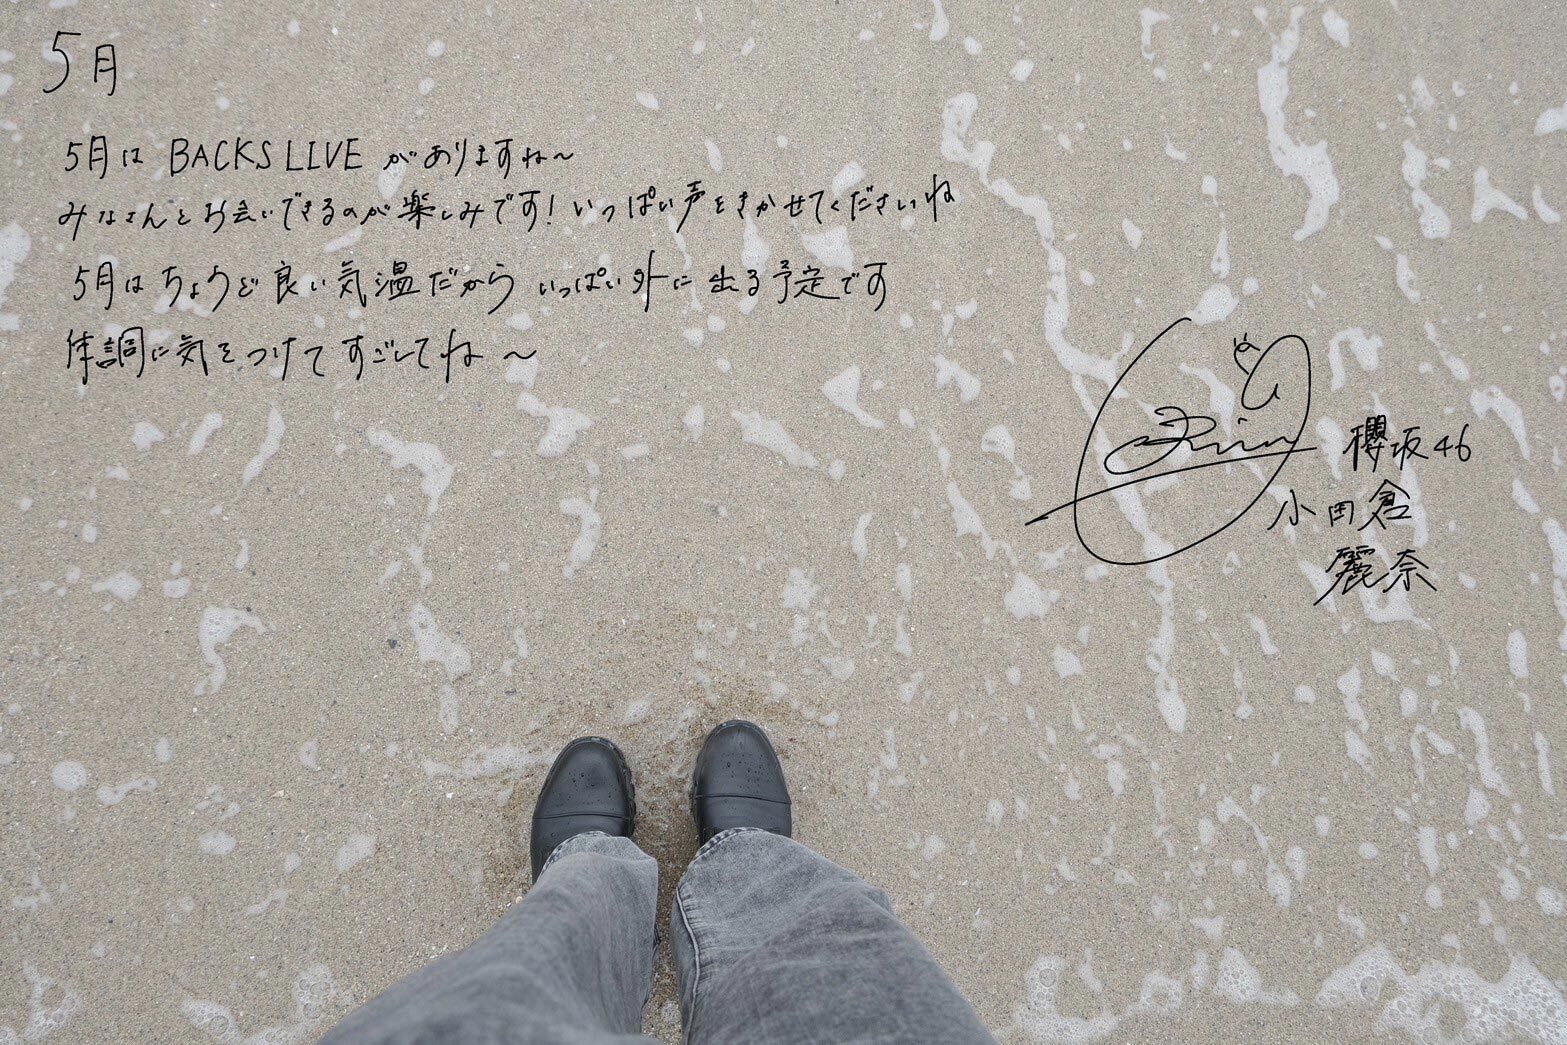 5月
5月は BACKS LIVE がありますね～
みなさんとお会いできるのが楽しみです！いっぱい声をきかせてくださいね
5月はちょうど良い気温だから いっぱい外に出る予定です
体調に気をつけてすごしてね～
Rina
櫻坂46
小田倉
麗奈